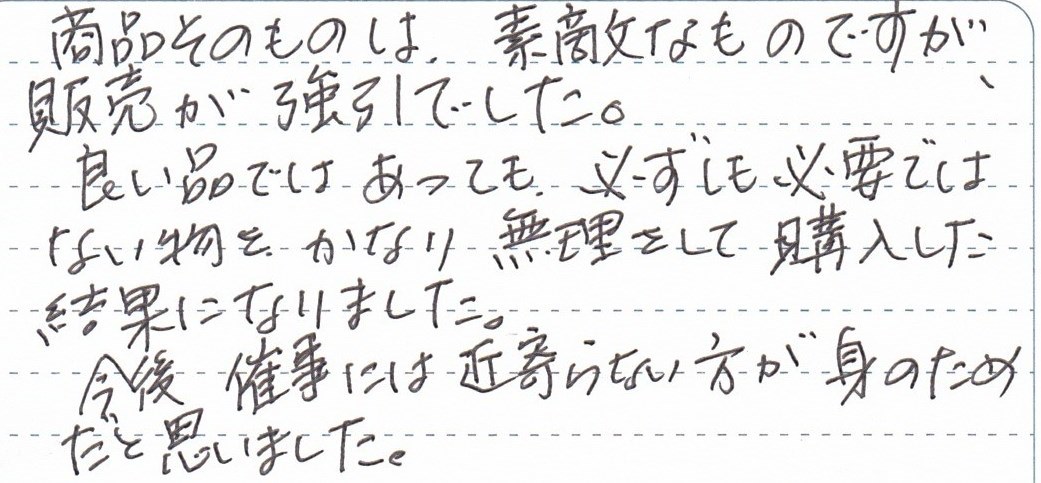 商品そのものは、素敵なものですが、
販売が強引でした。
良い品ではあっても、必ずしも必要では
ない物を、かなり無理をして購入した
結果になりました。
今後 催事には近寄らない方が身のため
だと思いました。